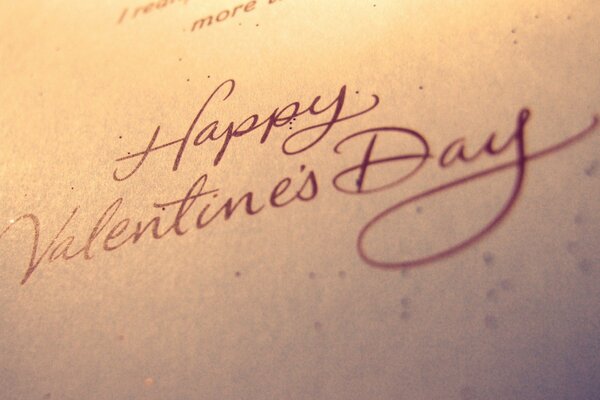 I really
more
Happy
Valentine's Day